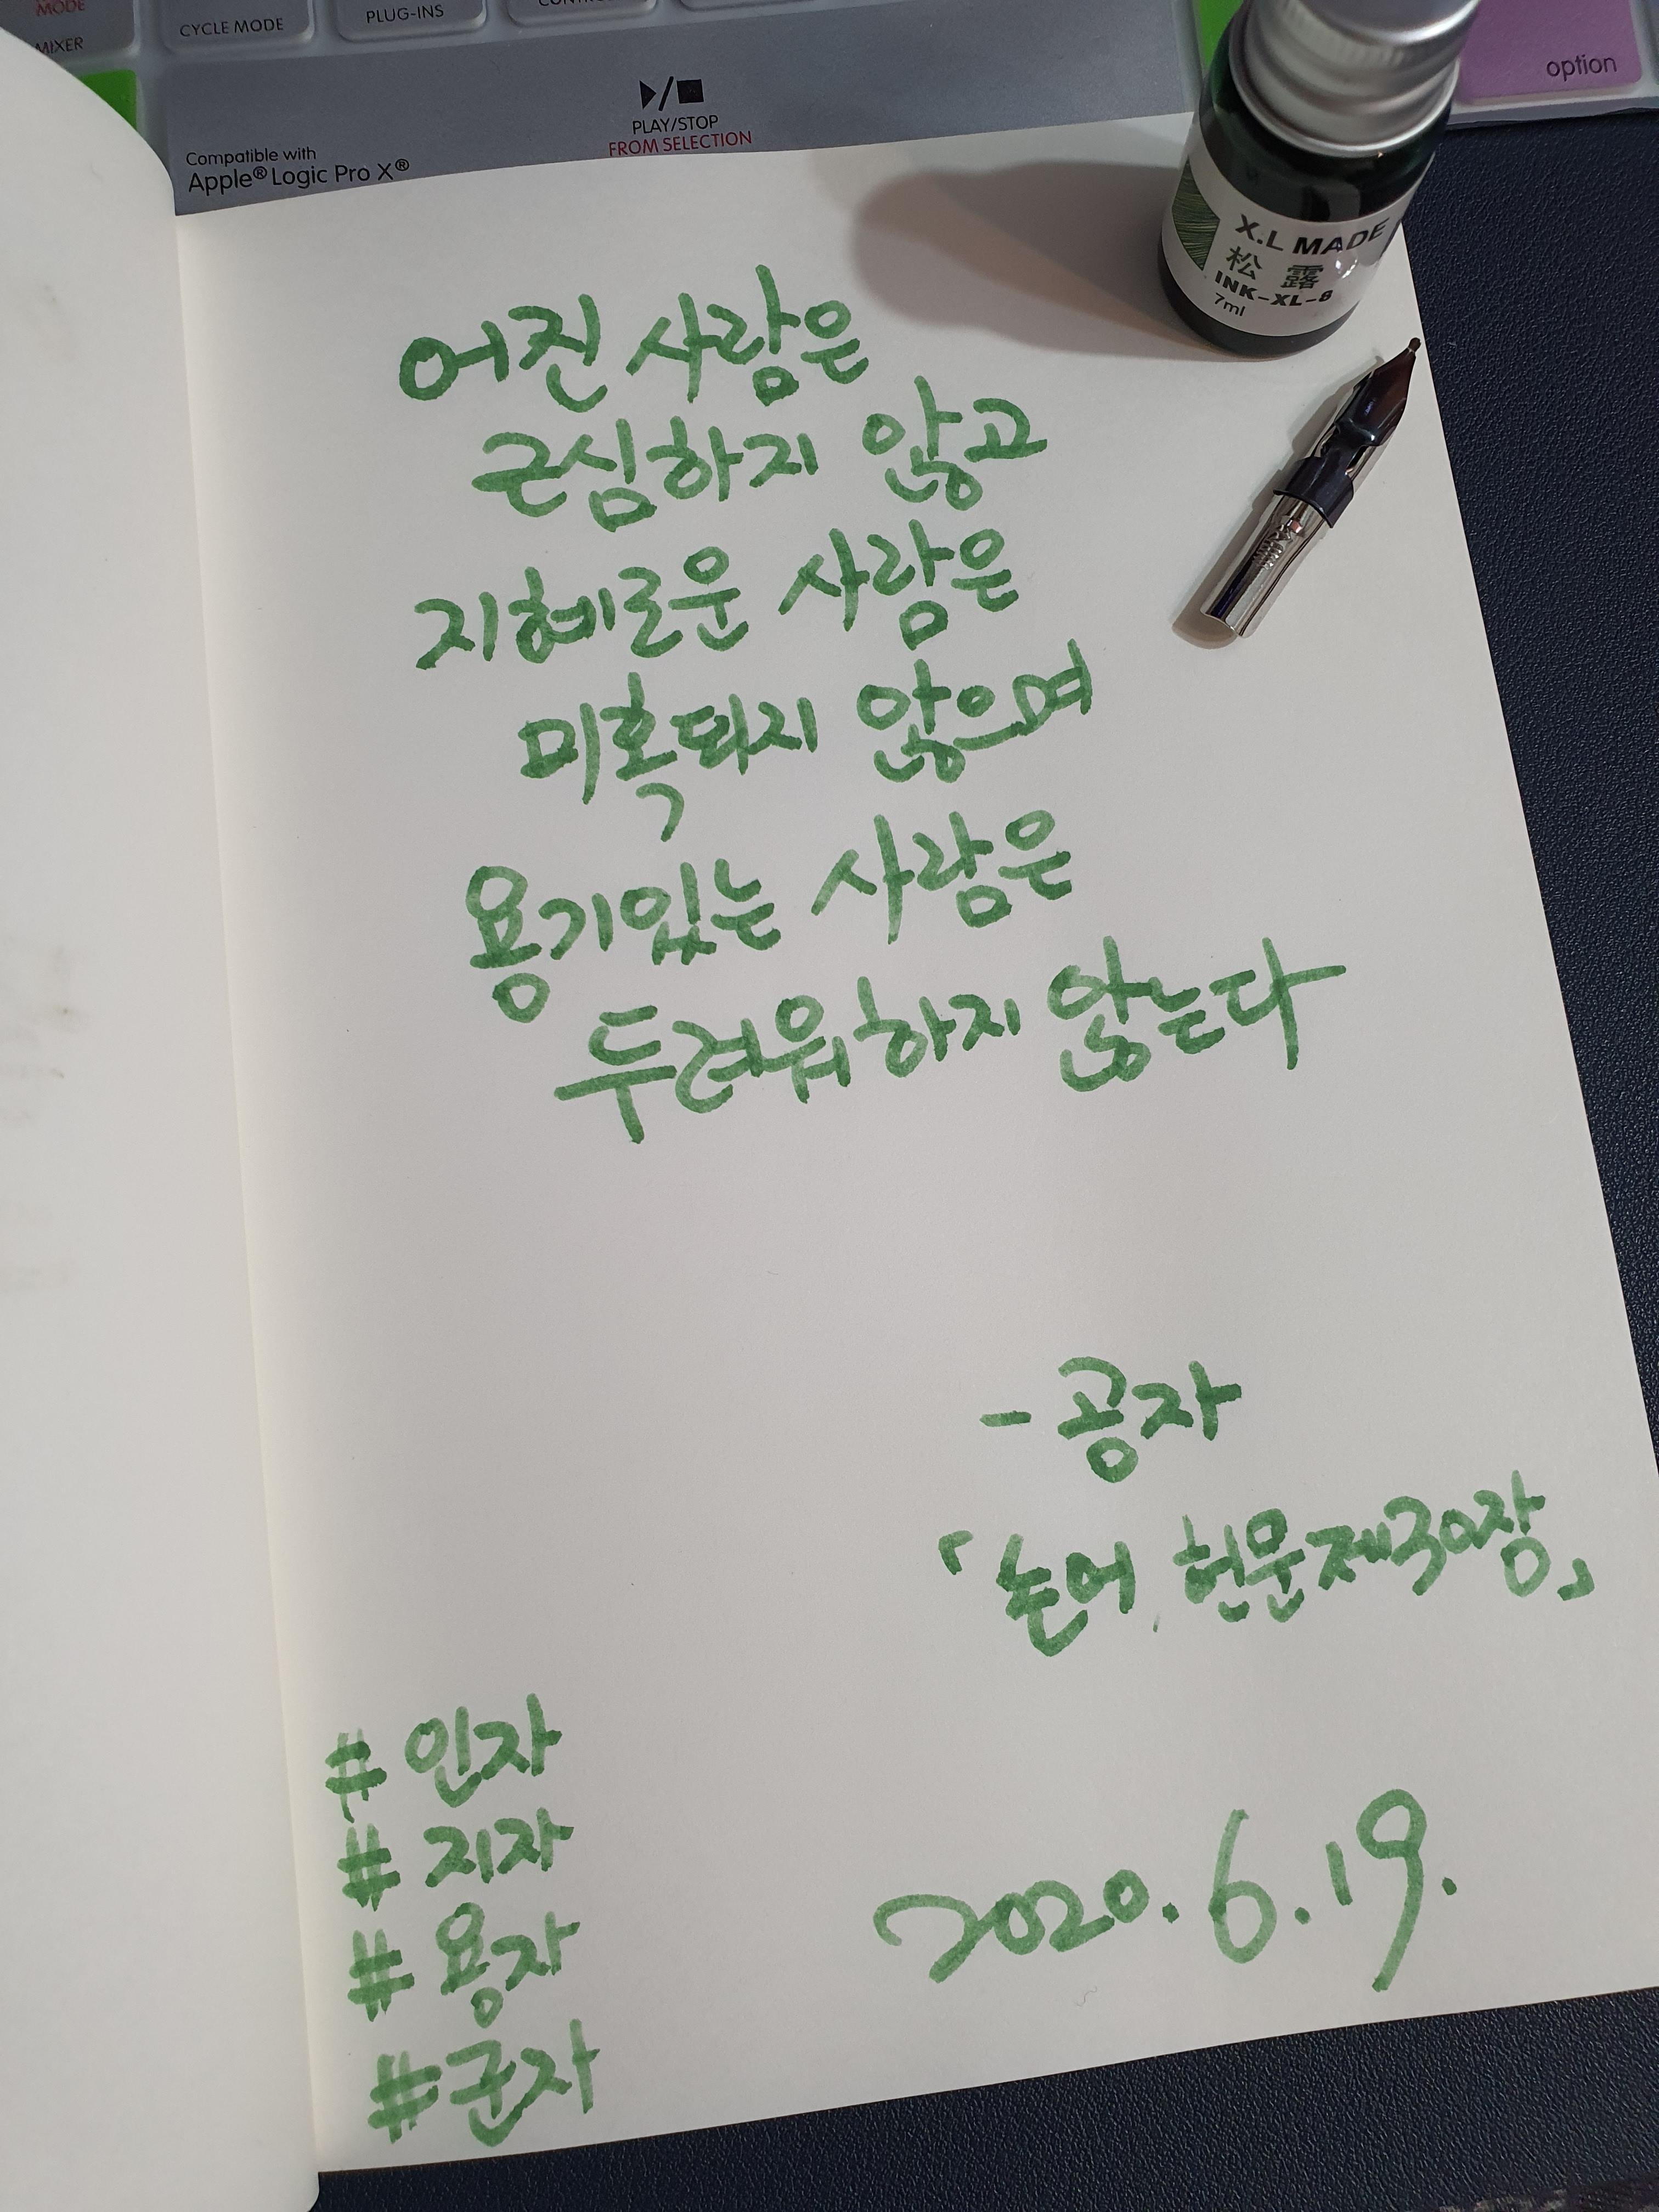 MODE
MIXER
CYCLE MODE
PLUG-INS
PLAY/STOP
FROM SELECTION
Compatible with
Apple® Logic Pro X®
option
X.L MADE
松露
INK-XL-8
7ml
어진 사람은
근심하지 않고
지혜로운 사람은
미혹되지 않으며
용기있는 사람은
두려워하지 않는다
- 공자
「논어, 헌문제30장」
# 인자
# 지자
# 용자
# 군자
2020. 6. 19.